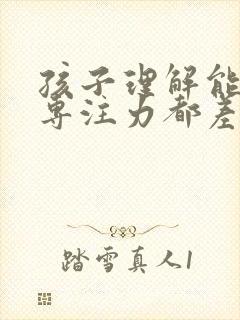 孩子理解能
专注力都差
踏雪真人1